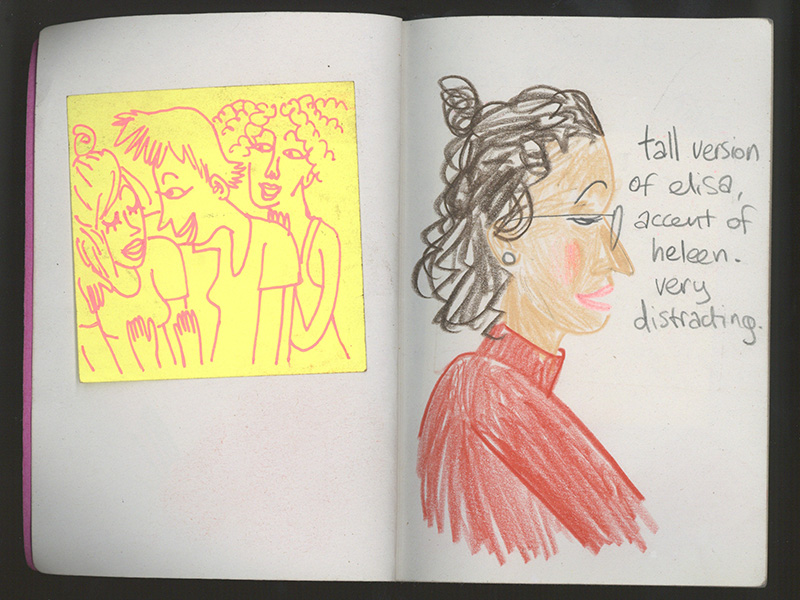 tall version
of elisa,
accent of
heleen.
very
distracting.